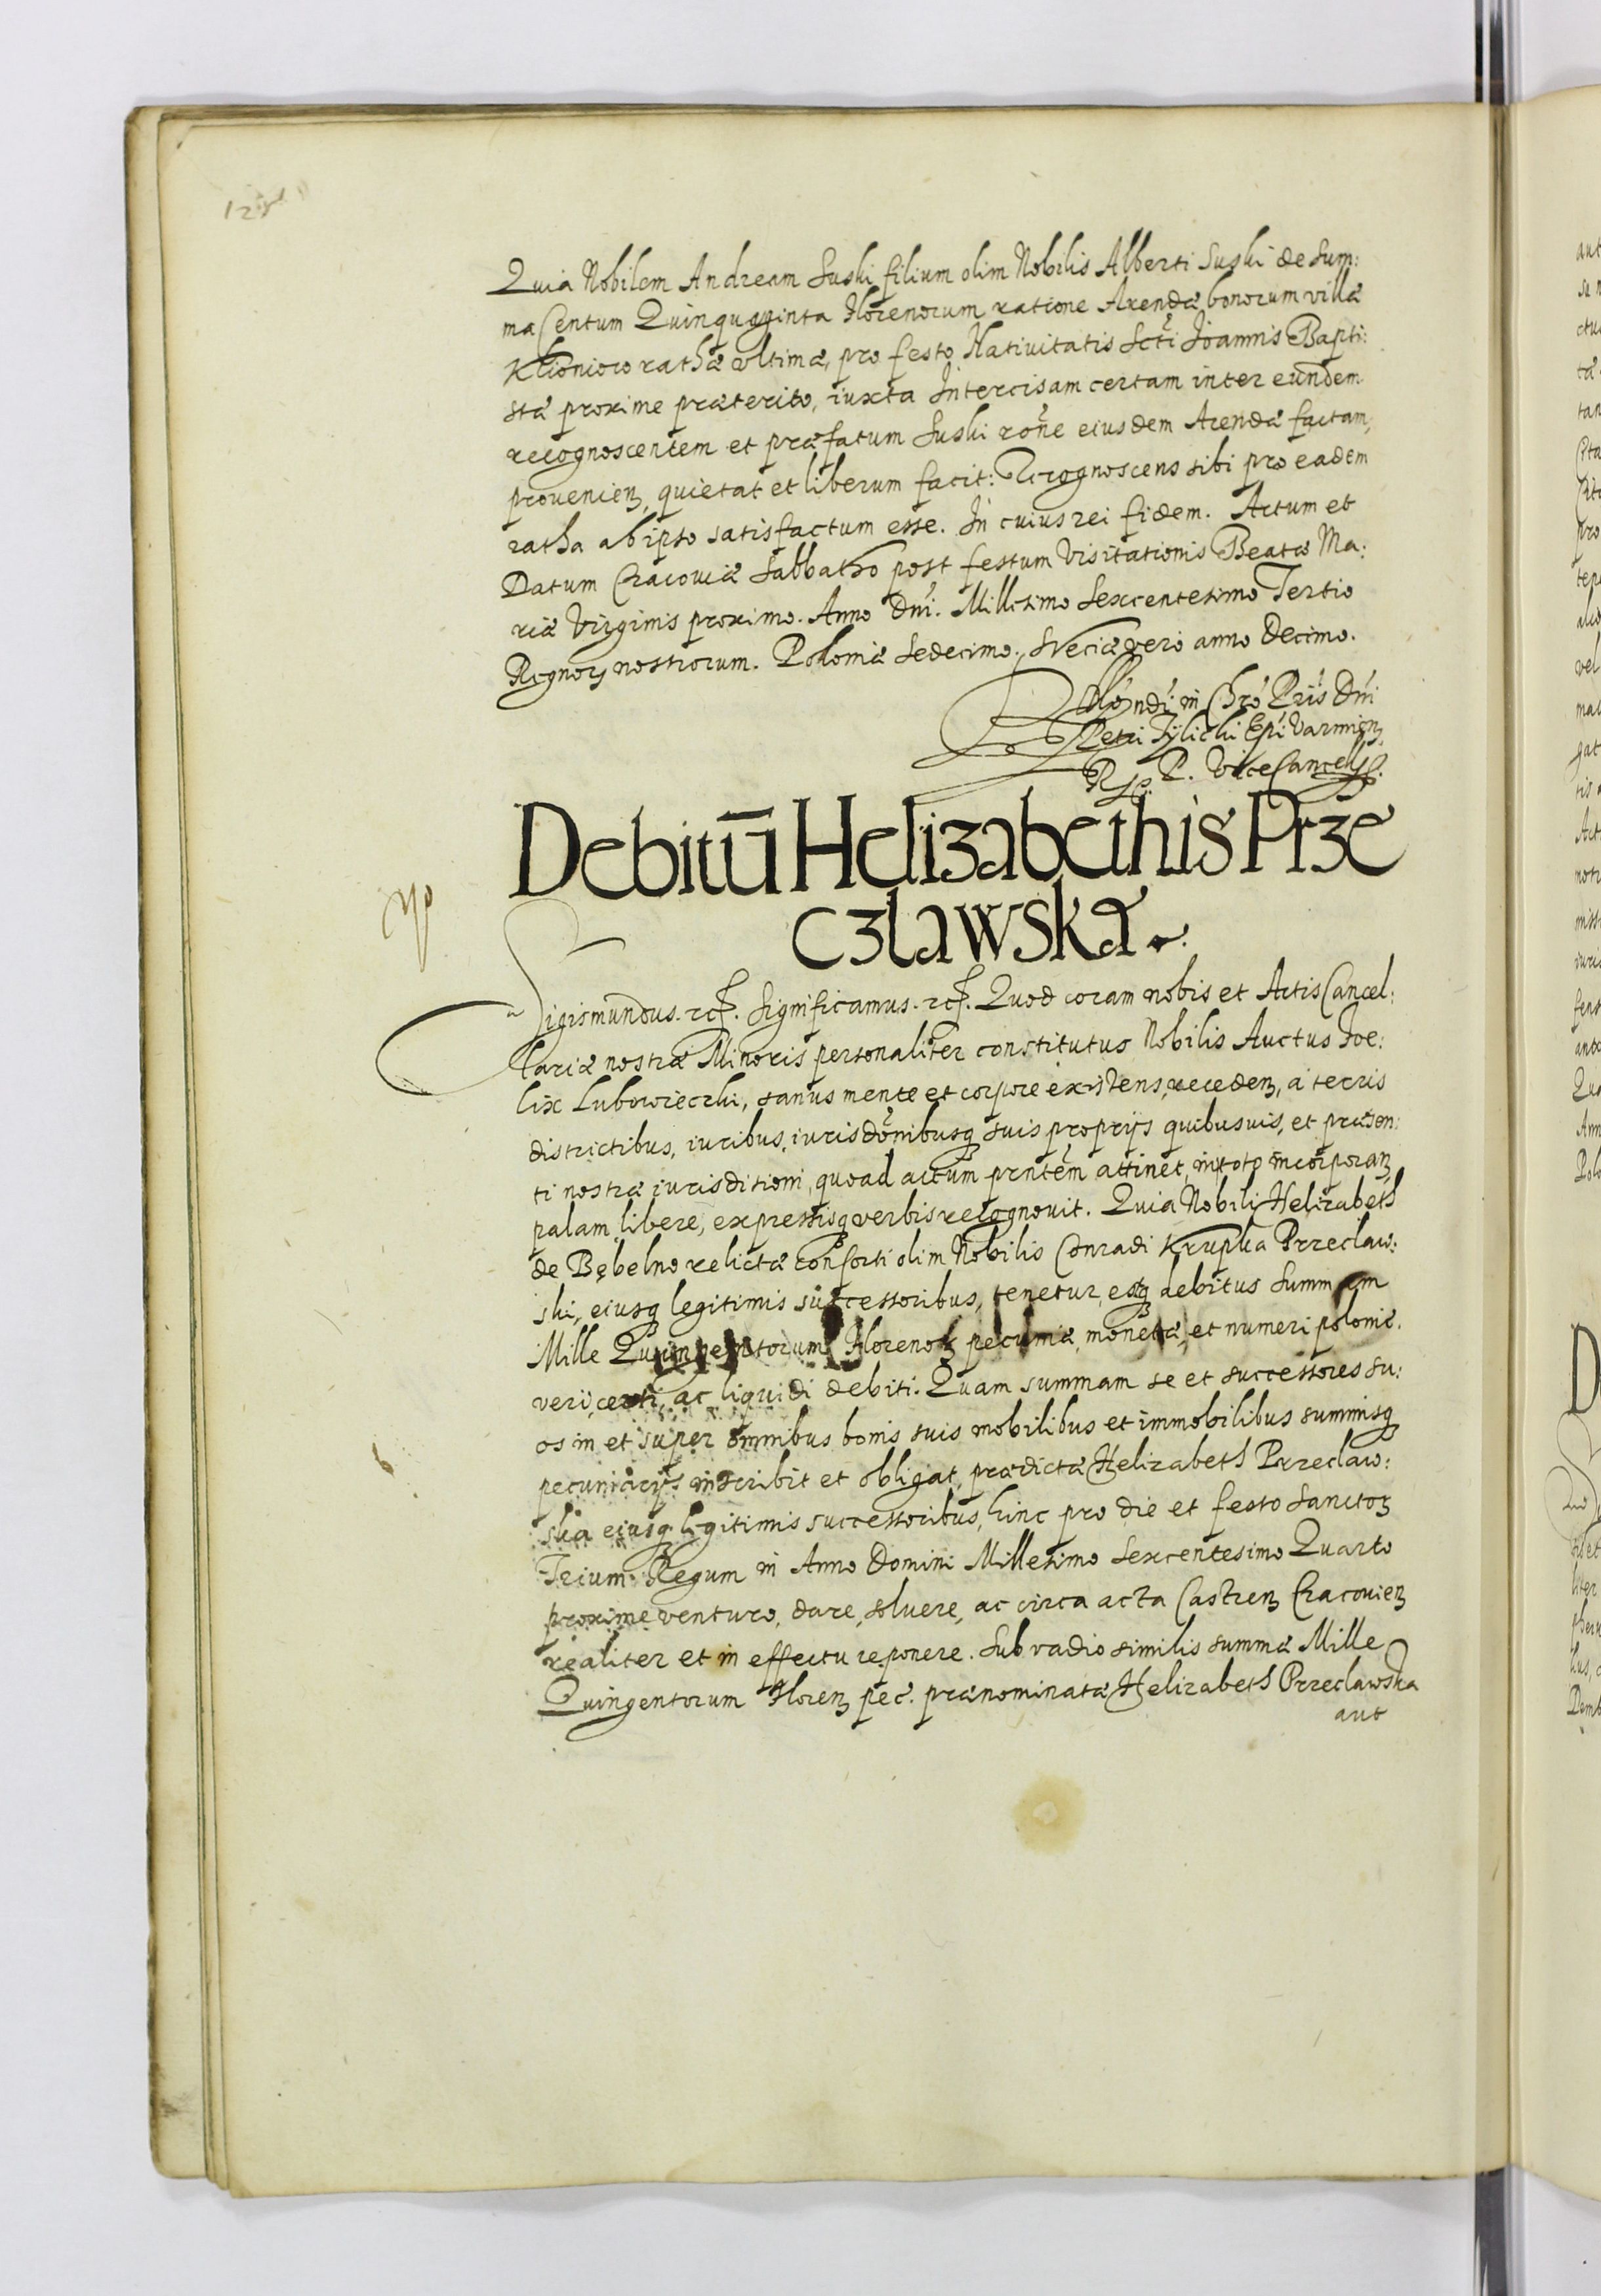 Quia Nobilem Andream Suski filium olim Nobilis Alberti Suski de Sum:
ma Centum Quinquaginta Florenorum ratione Arendæ bonorum villæ
Klioniow rathæ vltimæ, pro festo Natiuitatis Scti Joannis Bapti:
stæ proxime præterito, iuxta Intercisam certam inter eundem
recognoscentem et præfatum Suski rone eiusdem Arendæ factam,
prouenien, quietat et liberum facit: Recognoscens sibi pro eadem
ratha ab ipso satisfactum esse. In cuius rei fidem. Actum et
Datum Cracouiæ Sabbatho post festum Visitationis Beatæ Ma:
riæ Virginis proximo. Anno Dni. Millesimo Sexcentesimo Tertio
Regnorꝫ nostrorum. Poloniæ Sedecimo. Sveciæ vero anno Decimo.
Rndi in Chro Pris Dni
Petri Tylicki Epi Varmien
R. P. ViceCancell
Debitū Helizabethis Prze
czlawska
Sigismundus. rcf. Significamus. rcf. Quod coram nobis et Actis Cancel:
lariæ nostræ Minoris personaliter constitutus Nobilis Auctus Foe:
lix Lubowieczki, sanus mente et corpore existens, receden, a terris
districtibus, iuribus, iurisdonibusq suis proprijs quibusuis, et præsen:
ti nostræ iurisditioni, quoad actum prntem attinet, in toto incorporan
palam, libere, expressisq verbis recognouit. Quia Nobili Helizabeth
de Bębelno relictæ consorti olim Nobilis Conradi Krupka Przeclaw:
ski, eiusq legitimis successoribus, tenetur, estq debitus Summam
Mille Quingentorum Florenoꝝ pecuniæ, monetæ, et numeri polonic.
veri, certi, ac liquidi debiti. Quam summam se et successores su:
os in et super omnibus bonis suis mobilibus et immobilibus summisq
pecuniarijs inscribit et obligat, prædictæ Helizabeth Przeclaw:
ska eiusq legitimis successoribus, hinc pro die et festo Sanctoꝝ
Trium Regum in Anno Domini Millesimo Sexcentesimo Quarto
proxime venturo, dare, soluere, ac circa acta Castren Cracouien
realiter et in effectu reponere. Sub vadio similis summæ Mille
Quingentorum Floren pec. prænominatæ Helizabeth Przeclawska
aut